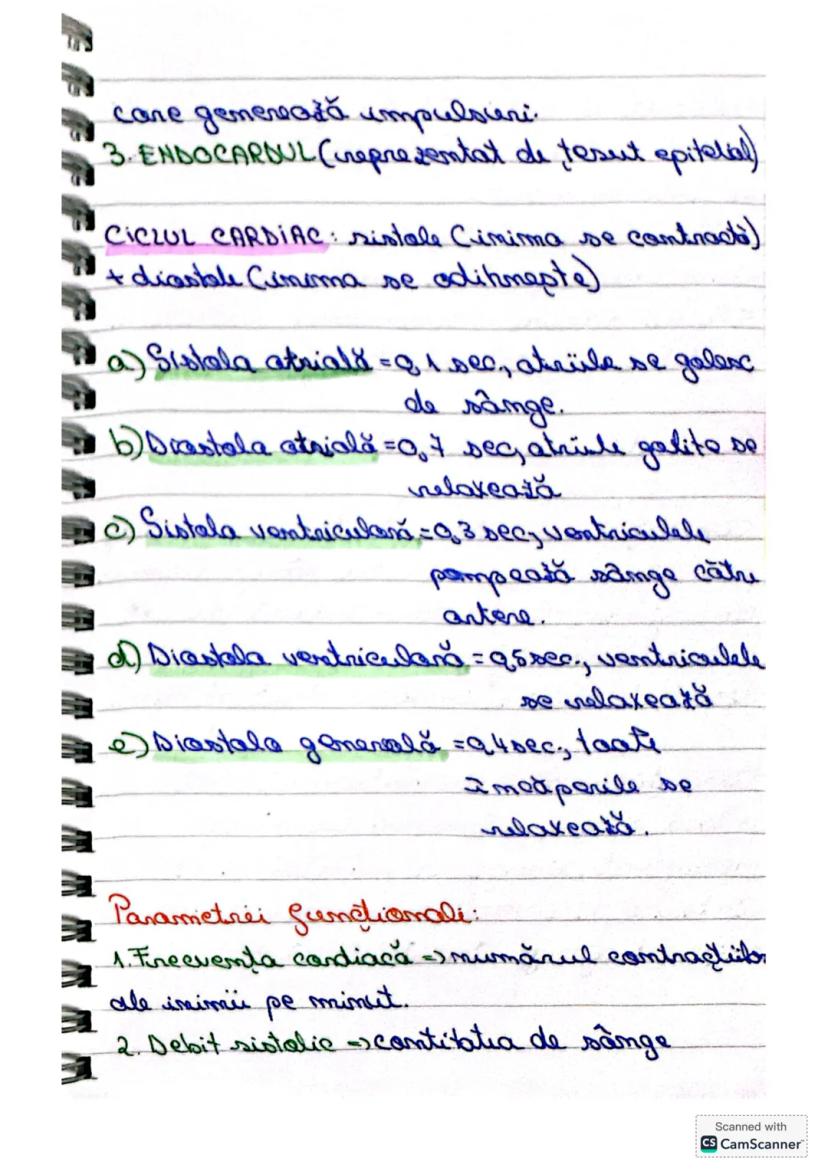 care generează impulsuri.
3. ENDOCARDUL (reprezentat de țesut epitelial)
CICLUL CARDIAC: sistole (inima se contractă)
+ diastole (inima se odihnește)
a) Sistola atrială = 0,1 sec., atriile se golesc
de sânge.
b) Diastola atrială = 0,7 sec., atriile golite se
relaxează
c) Sistola ventriculară = 0,3 sec., ventriculele
pompează sânge către
artere.
d) Diastola ventriculară = 0,5 sec., ventriculele
se relaxează
e) Diastola generală = 0,4 sec., toate
încăperile se
relaxează.
Parametrii funcționali:
1. Frecvența cardiacă => numărul contracțiilor
ale inimii pe minut.
2. Debit sistolic => cantitatea de sânge
Scanned with
CS CamScanner